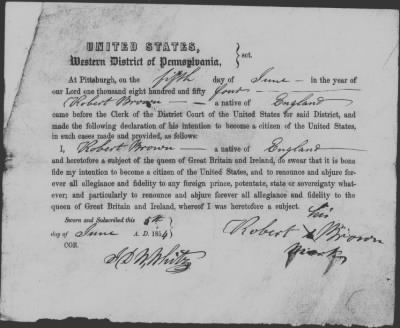 UNITED STATES,
Western District of Pennsylvania, } sct.
At Pittsburgh, on the fifth day of June in the year of
our Lord one thousand eight hundred and fifty four
Robert Brown a native of England
came before the Clerk of the District Court of the United States for said District, and
made the following declaration of his intention to become a citizen of the United States,
in such cases made and provided, as follows:
I, Robert Brown a native of England
and heretofore a subject of the queen of Great Britain and Ireland, do swear that it is bona
fide my intention to become a citizen of the United States, and to renounce and abjure for-
ever all allegiance and fidelity to any foreign prince, potentate, state or sovereignty what-
ever; and particularly to renounce and abjure forever all allegiance and fidelity to the
queen of Great Britain and Ireland, whereof I was heretofore a subject.
Sworn and Subscribed this 5th
day of June A. D. 1854
COR.
his
Robert X Brown
mark